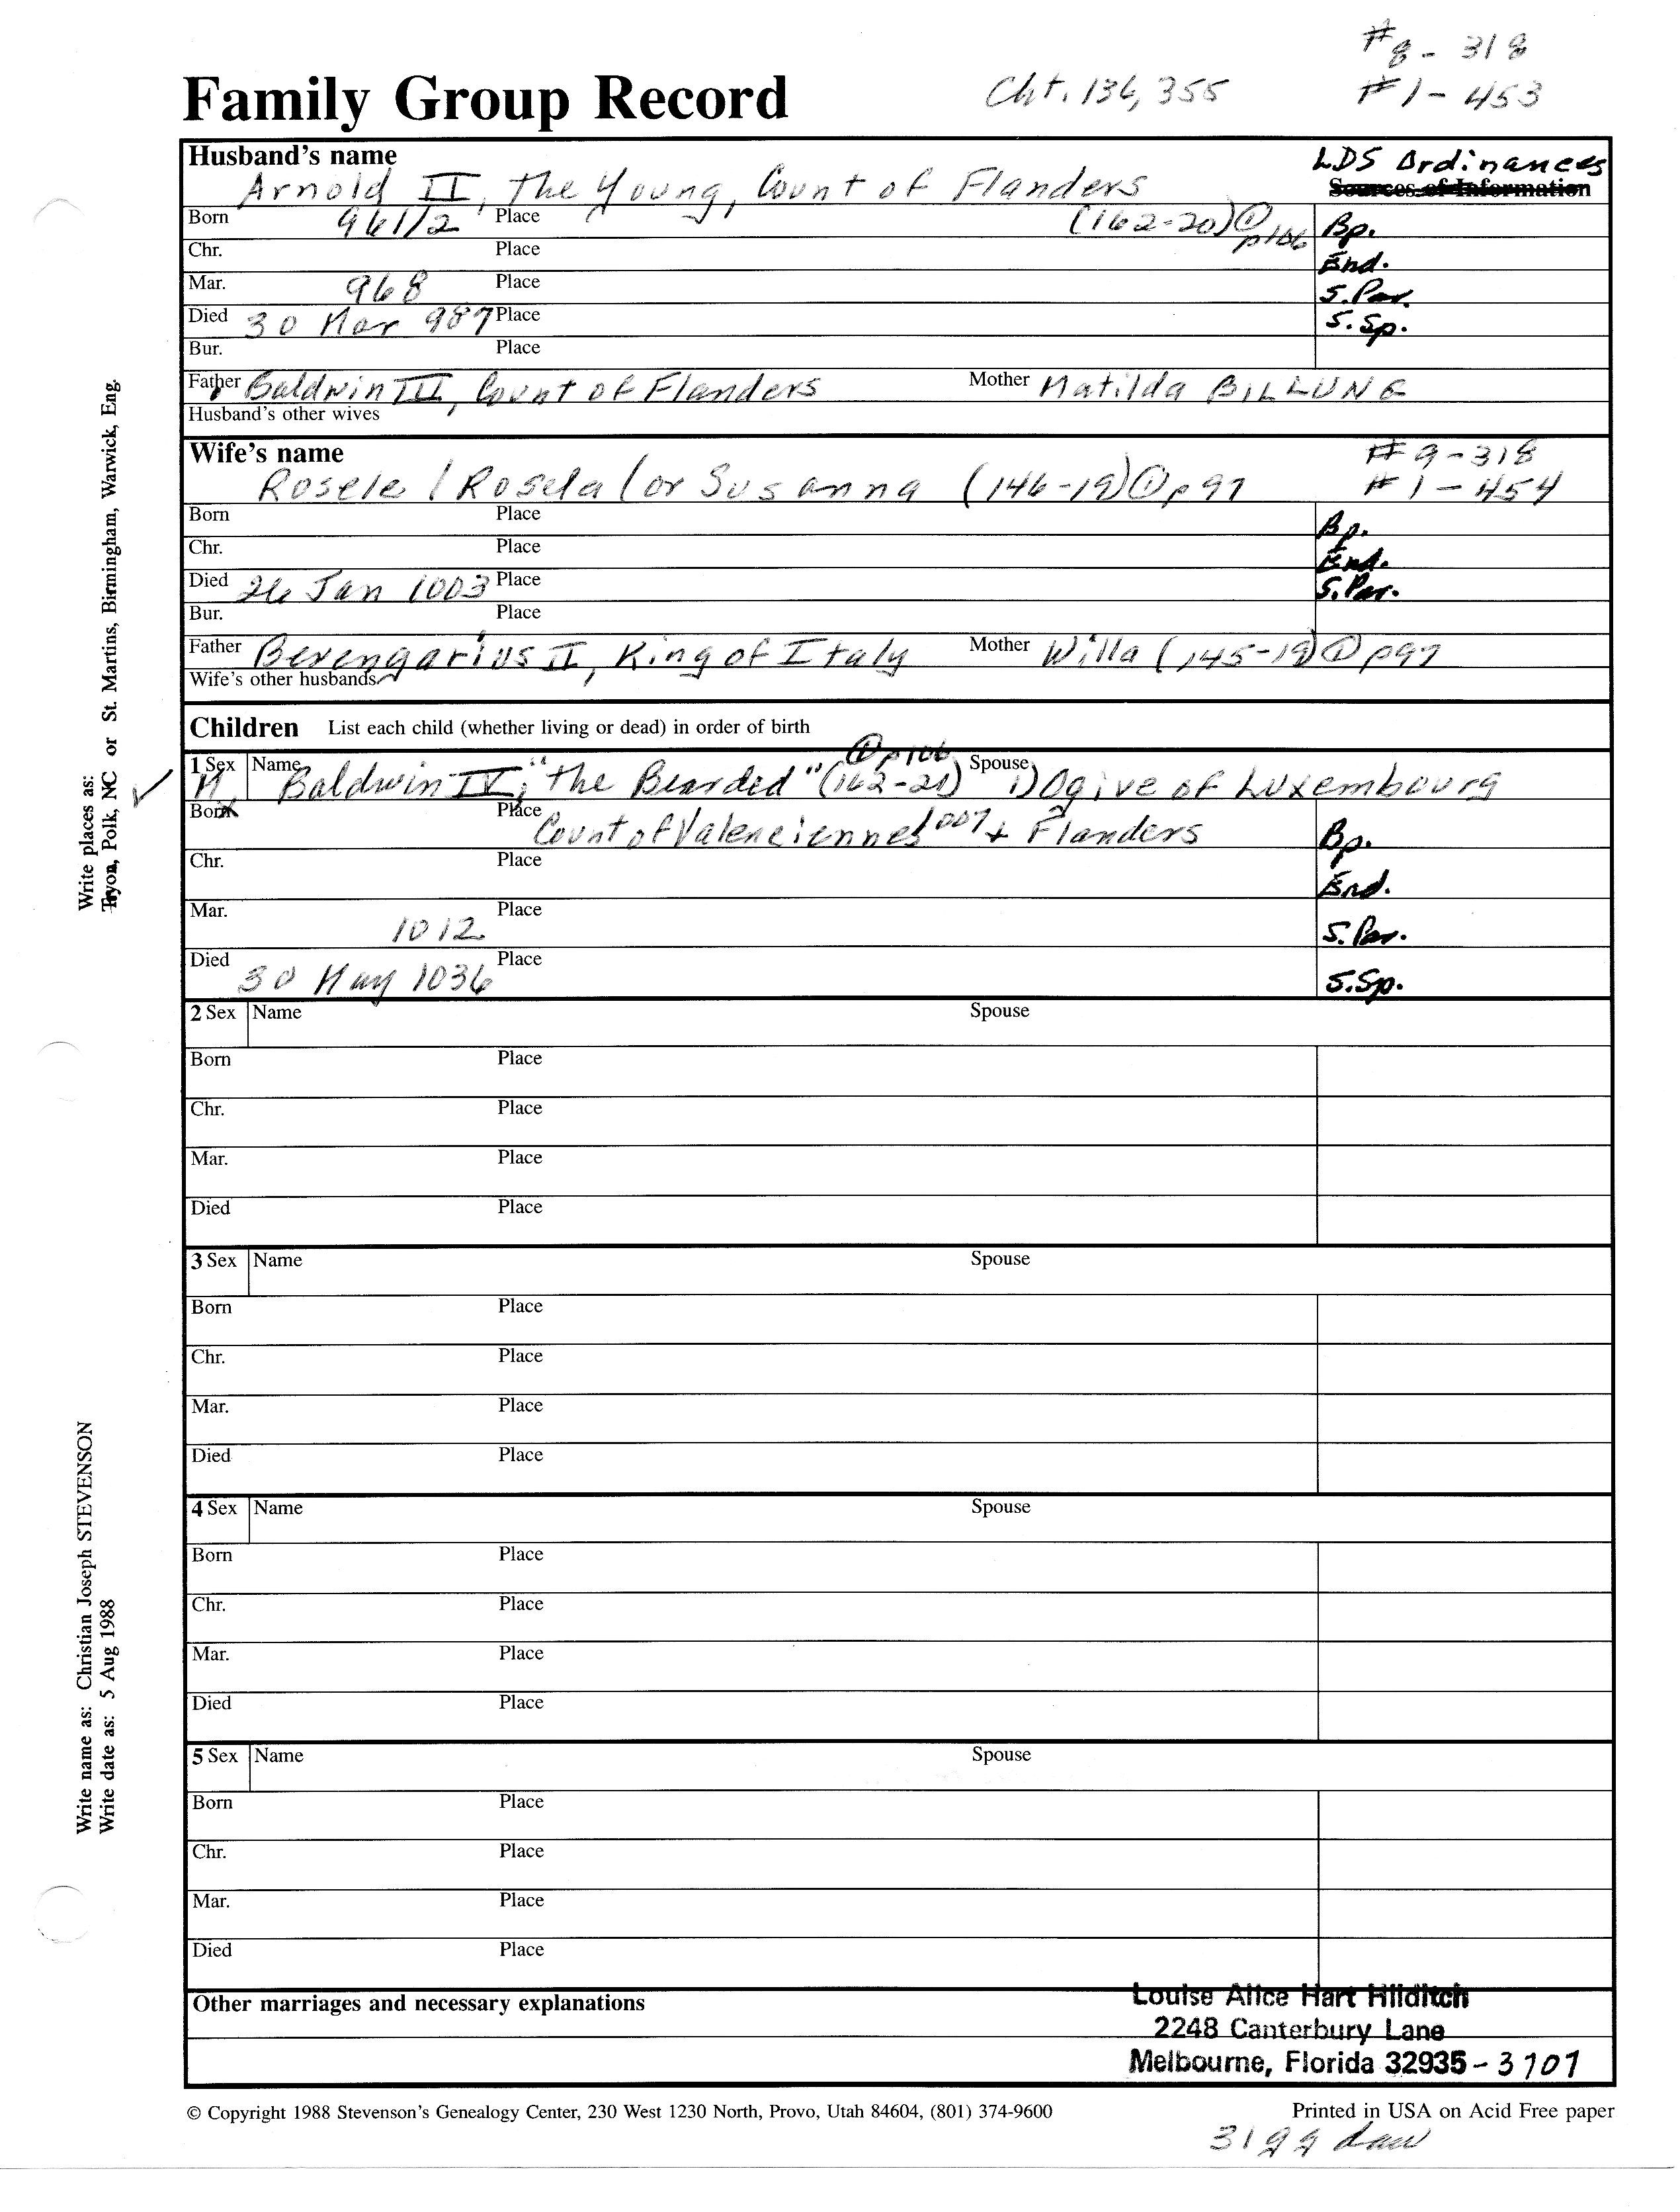 #8 - 318
Family Group Record Cht. 136, 355 #1 - 453
Husband's name LDS Ordinances
Arnold II, the Young, Count of Flanders Sources of Information
Born 961/2 Place (162-20)① p106 Bp.
Chr. Place End.
Mar. 968 Place S. Par.
Died 30 Mar 987 Place S. Sp.
Bur. Place
Father Baldwin III, Count of Flanders Mother Matilda BILLUNG
Husband's other wives
Wife's name #9-318
Rosele / Rosela (or Susanna (146-19)① p97 #1-454
Born Place Bp.
Chr. Place End.
Died 26 Jan 1003 Place S. Par.
Bur. Place
Father Berengarius II, King of Italy Mother Willa (145-19)① p97
Wife's other husbands
Children List each child (whether living or dead) in order of birth
① p106
1 Sex Name Spouse
M. Baldwin IV, "the Bearded" (162-21) 1) Ogive of Luxembourg
Born Place Count of Valenciennes 1007 + Flanders Bp.
Chr. Place End.
Mar. 1012 Place S. Par.
Died 30 May 1036 Place S.Sp.
2 Sex Name Spouse
Born Place
Chr. Place
Mar. Place
Died Place
3 Sex Name Spouse
Born Place
Chr. Place
Mar. Place
Died Place
4 Sex Name Spouse
Born Place
Chr. Place
Mar. Place
Died Place
5 Sex Name Spouse
Born Place
Chr. Place
Mar. Place
Died Place
Other marriages and necessary explanations Louise Alice Hart Hilditch
2248 Canterbury Lane
Melbourne, Florida 32935 - 3707
© Copyright 1988 Stevenson's Genealogy Center, 230 West 1230 North, Provo, Utah 84604, (801) 374-9600 Printed in USA on Acid Free paper
Write places as:
Tryon, Polk, NC or St. Martins, Birmingham, Warwick, Eng.
Write name as: Christian Joseph STEVENSON
Write date as: 5 Aug 1988